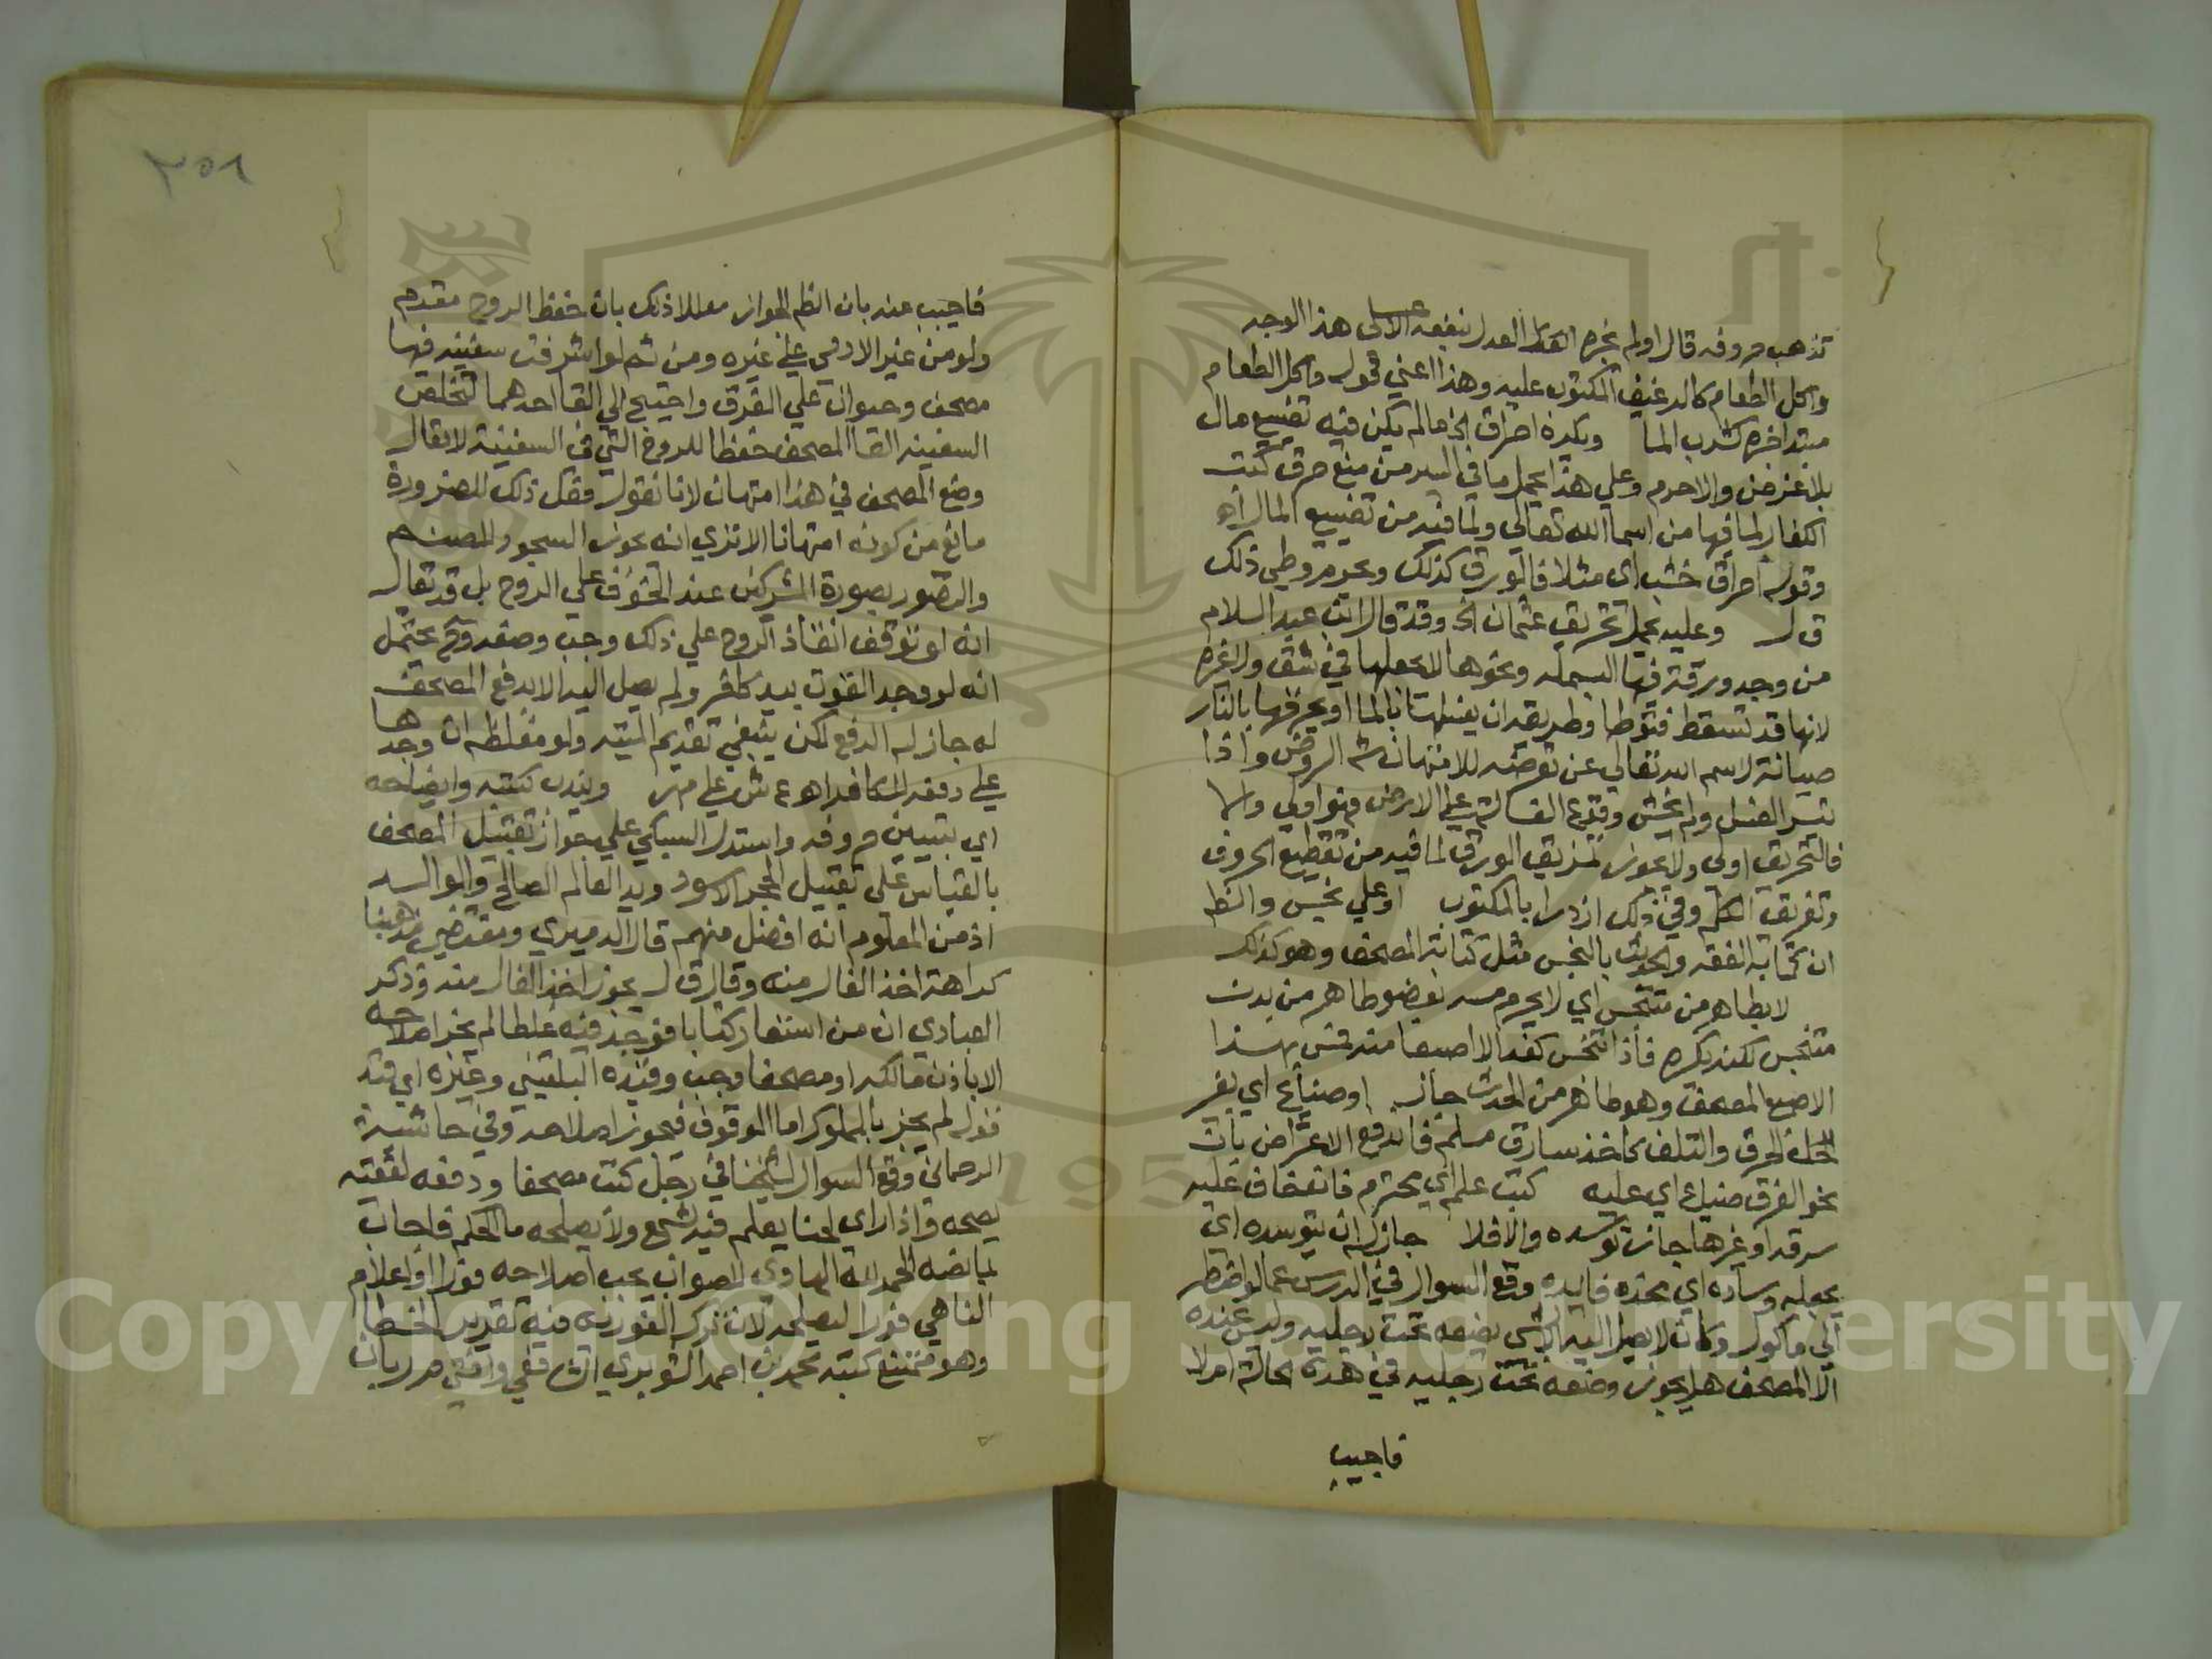 تذهب حروفه قال اولم نجره العدل بنفعه الاكل هذا الوجه
واكل الطعام كالرغيف المكتوب عليه وهذا اعني قوله واكل الطعام
مبتدا خبره كشرب الما ويكره احراق الخ ما لم يكن فيه تضييع مال
بلا غرض والاحرم وعلي هذا يحمل ما في السير من منع حرق كتب
الكفار لما فيها من اسما الله تعالي ولما فيه من تضييع المال اهـ
وقوله احراق خشب اي مثلا فالورق كذلك ويحرم وطي ذلك
ق ل وعليه يحمل تحريق عثمان الخ وقد قال ابن عبد السلام
من وجد ورقة فيها البسملة ونحوها لا يجعلها في شق ولا غيره
لانها قد تسقط فتوطا وطريقه ان يغسلها بالما او يحرقها بالنار
صيانة لاسم الله تعالي عن تعرضه للامتهان شرح الروض واذا
تيسر الغسل ولم يخش وقوع الغسالة علي الارض فهو اولي والا
فالتحريق اولي ولا يجوز تمزيق الورق لما فيه من تقطيع الحروف
وتفريق الكلم وفي ذلك ازدرا بالمكتوب او علي نجس وانظر
ان كتابة الفقه والحديث بالنجس مثل كتابة المصحف وهو كذلك
لا بطاهر من متنجس اي لا يحرم مسه بعضو طاهر من بدن
متنجس لكنه يكره فاذا تنجس كفه الا اصبعا منه فمس بهذا
الاصبع المصحف وهو طاهر من الحدث جاز او ضياع اي بغير
الحرق والتلف كاخذ سارق مسلم فاندفع الاعتراض بان
نحو الغرق ضياع اي عليه كتب علم اي محترم فان خاف عليه
سرقة او غيرها جاز توسده والا فلا جاز له ان يتوسده اي
يجعله وسادة اي مخدة فائدة وقع السوال في الدرس عما لو اضطر
الي ماكول وكان لا يصل اليه الا بشي يضعه تحت رجليه وليس عنده
الا المصحف هل يجوز وضعه تحت رجليه في هذه الحالة ام لا
فاجيب
٣٥٨
فاجيب عنه بان الظم الجواز معللا ذلك بان حفظ الروح مقدم
ولو من غير الادمي علي غيره ومن ثم لو اشرفت سفينة فيها
مصحف وحيوان علي الغرق واحتيج الي القا احدهما لتخلص
السفينة القا المصحف حفظا للروح التي في السفينة لا يقال
وضع المصحف في هذا امتهان لانا نقول فعل ذلك للضرورة
مانع من كونه امتهانا الا تري انه يجوز السجود للصنم
والتصور بصورة المشركين عند الخوف علي الروح بل قد يقال
انه لو توقف انقاذ الروح علي ذلك وجب وضعه وح يحتمل
انه لو وجد القوت بيد كافر ولم يصل اليه الا بدفع المصحف
له جاز له الدفع لكن ينبغي تقديم الميتة ولو مغلظة ان وجدها
علي دفعه للكافر اهـ ع ش علي م ر ويندب كتبه وايضاحه
اي تبيين حروفه واستدل السبكي علي جواز تقبيل المصحف
بالقياس علي تقبيل الحجر الاسود ويد العالم الصالح والوالد
اذ من المعلوم انه افضل منهم قال الدميري ومقتضي مذهبنا
كراهة اخذ الفال منه وقال ق ل يجوز اخذ الفال منه وذكر
العبادي ان من استعار كتابا فوجد فيه غلطا لم يجز اصلاحه
الا باذن مالكه او مصحفا وجب وقيده البلقيني وغيره اي قيد
قوله لم يجز بالمملوك اما الموقوف فيجوز اصلاحه وفي حاشية
الرحماني وقع السوال لشيخنا في رجل كتب مصحفا ودفعه لفقيه
يصححه واذا راي لحنا يعلم فيه لشمع ولا يصلحه ما الحكم فاجاب
بما نصه الحمد لله الهادي للصواب يجب اصلاحه فورا او اعلام
الناهي فورا ليصلحه لان ترك الفورية فيه تقرير الخطا
وهو ممتنع كتبه محمد بن احمد الشوبري الشافعي وافتي م ر بان
Copyright © King Saud University
195